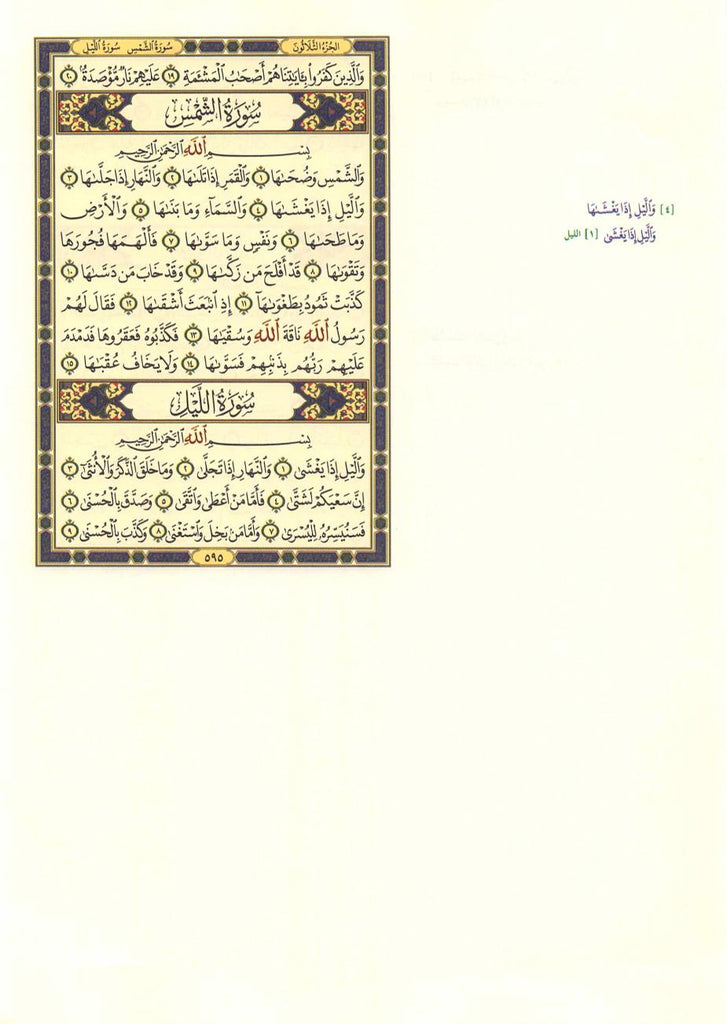 سُورَةُ الشَّمْسِ سُورَةُ اللَّيْلِ
الجُزْءُ الثَّلَاثُونَ
وَٱلَّذِينَ كَفَرُوا۟ بِـَٔايَـٰتِنَا هُمْ أَصْحَـٰبُ ٱلْمَشْـَٔمَةِ ١٩ عَلَيْهِمْ نَارٌ مُّؤْصَدَةٌۢ ٢٠
سُورَةُ الشَّمْسِ
بِسْمِ ٱللَّهِ ٱلرَّحْمَـٰنِ ٱلرَّحِيمِ
وَٱلشَّمْسِ وَضُحَىٰهَا ١ وَٱلْقَمَرِ إِذَا تَلَىٰهَا ٢ وَٱلنَّهَارِ إِذَا جَلَّىٰهَا ٣
وَٱلَّيْلِ إِذَا يَغْشَىٰهَا ٤ وَٱلسَّمَآءِ وَمَا بَنَىٰهَا ٥ وَٱلْأَرْضِ
وَمَا طَحَىٰهَا ٦ وَنَفْسٍ وَمَا سَوَّىٰهَا ٧ فَأَلْهَمَهَا فُجُورَهَا
وَتَقْوَىٰهَا ٨ قَدْ أَفْلَحَ مَن زَكَّىٰهَا ٩ وَقَدْ خَابَ مَن دَسَّىٰهَا ١٠
كَذَّبَتْ ثَمُودُ بِطَغْوَىٰهَآ ١١ إِذِ ٱنۢبَعَثَ أَشْقَىٰهَا ١٢ فَقَالَ لَهُمْ
رَسُولُ ٱللَّهِ نَاقَةَ ٱللَّهِ وَسُقْيَـٰهَا ١٣ فَكَذَّبُوهُ فَعَقَرُوهَا فَدَمْدَمَ
عَلَيْهِمْ رَبُّهُم بِذَنۢبِهِمْ فَسَوَّىٰهَا ١٤ وَلَا يَخَافُ عُقْبَـٰهَا ١٥
سُورَةُ اللَّيْلِ
بِسْمِ ٱللَّهِ ٱلرَّحْمَـٰنِ ٱلرَّحِيمِ
وَٱلَّيْلِ إِذَا يَغْشَىٰ ١ وَٱلنَّهَارِ إِذَا تَجَلَّىٰ ٢ وَمَا خَلَقَ ٱلذَّكَرَ وَٱلْأُنثَىٰٓ ٣
إِنَّ سَعْيَكُمْ لَشَتَّىٰ ٤ فَأَمَّا مَنْ أَعْطَىٰ وَٱتَّقَىٰ ٥ وَصَدَّقَ بِٱلْحُسْنَىٰ ٦
فَسَنُيَسِّرُهُۥ لِلْيُسْرَىٰ ٧ وَأَمَّا مَنۢ بَخِلَ وَٱسْتَغْنَىٰ ٨ وَكَذَّبَ بِٱلْحُسْنَىٰ ٩
٥٩٥
[٤] وَٱلَّيْلِ إِذَا يَغْشَىٰهَا
وَٱلَّيْلِ إِذَا يَغْشَىٰ [١] الليل